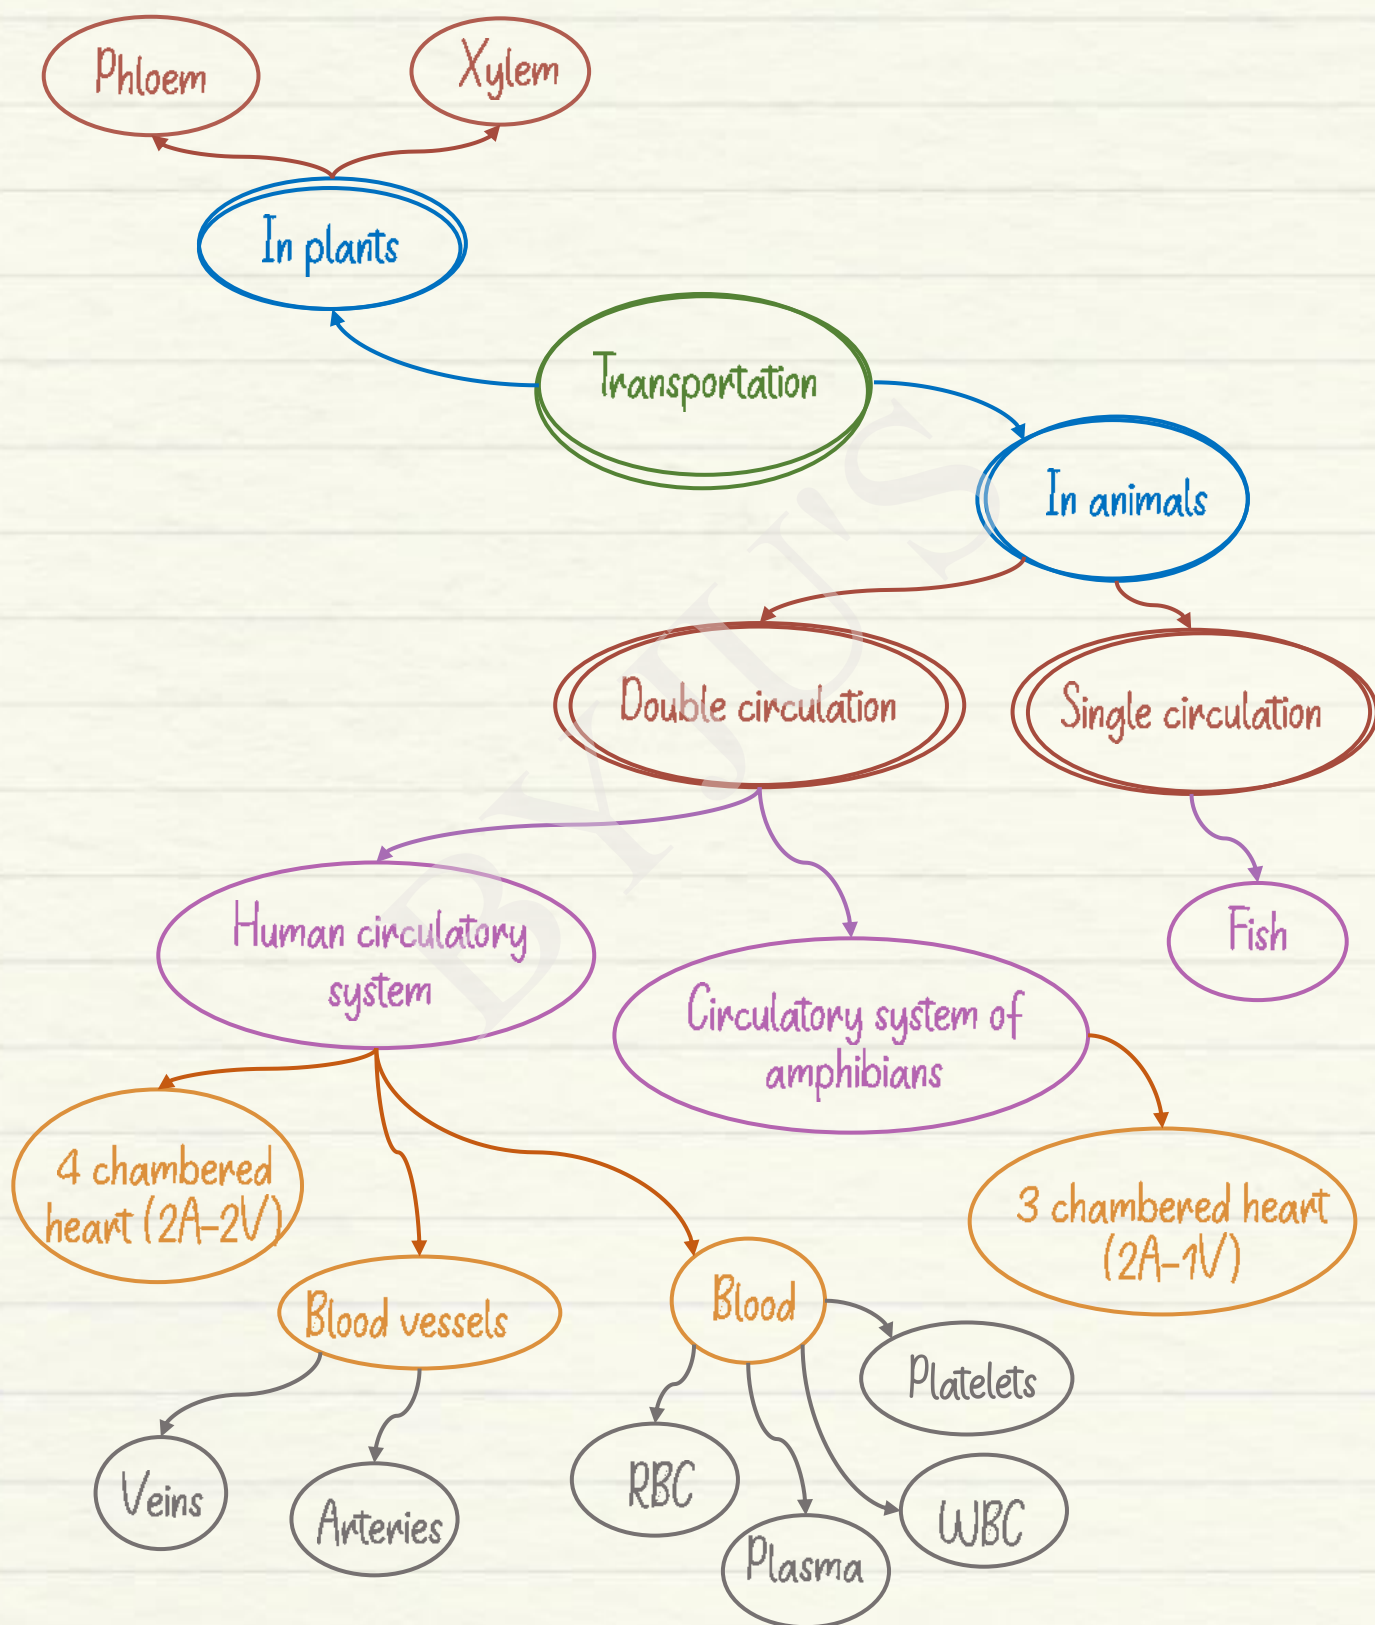 Phloem
Xylem
In plants
Transportation
In animals
Double circulation
Single circulation
Human circulatory
system
Fish
Circulatory system of
amphibians
4 chambered
heart (2A-2V)
3 chambered heart
(2A-1V)
Blood vessels
Blood
Platelets
Veins
Arteries
RBC
WBC
Plasma
BYJU'S